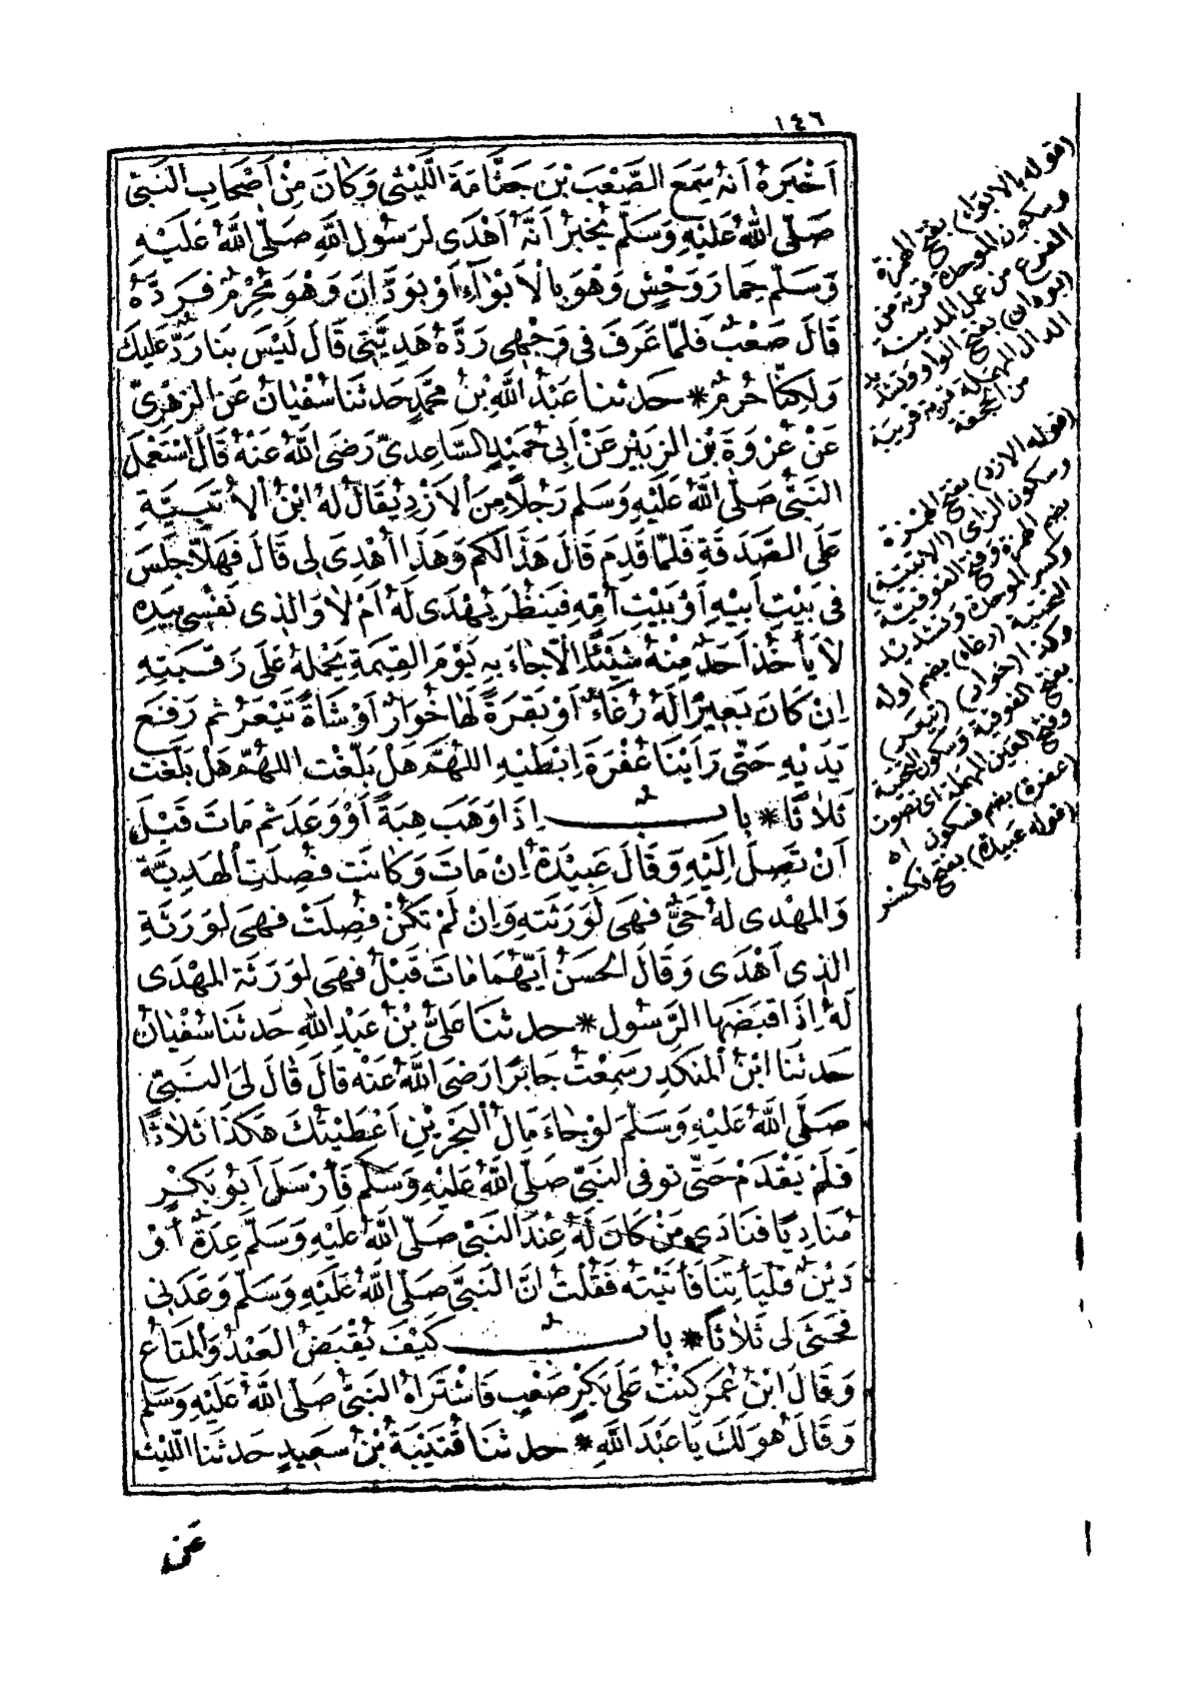 ١٤٦
اَخْبَرَهُ اَنَّهُ سَمِعَ الصَّعْبَ بْنَ جَثَّامَةَ اللَّيْثِيَّ وَكَانَ مِنْ اَصْحَابِ النَّبِيِّ
صَلَّى اللهُ عَلَيْهِ وَسَلَّمَ يُخْبِرُ اَنَّهُ اَهْدَى لِرَسُولِ اللهِ صَلَّى اللهُ عَلَيْهِ
وَسَلَّمَ حِمَارَ وَحْشٍ وَهْوَ بِالْاَبْوَآءِ اَوْ بِوَدَّانَ وَهْوَ مُحْرِمٌ فَرَدَّهُ
قَالَ صَعْبٌ فَلَمَّا عَرَفَ فِى وَجْهِى رَدَّهُ هَدِيَّتِى قَالَ لَيْسَ بِنَا رَدٌّ عَلَيْكَ
وَلَكِنَّا حُرُمٌ * حَدَّثَنَا عَبْدُ اللهِ بْنُ مُحَمَّدٍ حَدَّثَنَا سُفْيَانُ عَنِ الزُّهْرِىِّ
عَنْ عُرْوَةَ بْنِ الزُّبَيْرِ عَنْ اَبِى حُمَيْدٍ السَّاعِدِىِّ رَضِىَ اللهُ عَنْهُ قَالَ اسْتَعْمَلَ
النَّبِىُّ صَلَّى اللهُ عَلَيْهِ وَسَلَّمَ رَجُلًا مِنَ الْاَزْدِ يُقَالُ لَهُ ابْنُ الْاُتَبِيَّةِ
عَلَى الصَّدَقَةِ فَلَمَّا قَدِمَ قَالَ هَذَا لَكُمْ وَهَذَا اُهْدِىَ لِى قَالَ فَهَلَّا جَلَسَ
فِى بَيْتِ اَبِيهِ اَوْ بَيْتِ اُمِّهِ فَيَنْظُرَ يُهْدَى لَهُ اَمْ لَا وَالَّذِى نَفْسِى بِيَدِهِ
لَا يَأْخُذُ اَحَدٌ مِنْهُ شَيْئًا اِلَّا جَاءَ بِهِ يَوْمَ الْقِيَمَةِ يَحْمِلُهُ عَلَى رَقَبَتِهِ
اِنْ كَانَ بَعِيرًا لَهُ رُغَاءٌ اَوْ بَقَرَةً لَهَا خُوَارٌ اَوْ شَاةً تَيْعَرُ ثُمَّ رَفَعَ
يَدَيْهِ حَتَّى رَاَيْنَا عُفْرَةَ اِبْطَيْهِ اللَّهُمَّ هَلْ بَلَّغْتُ اللَّهُمَّ هَلْ بَلَّغْتُ
ثَلَاثًا * بابـــ اِذَا وَهَبَ هِبَةً اَوْ وَعَدَ ثُمَّ مَاتَ قَبْلَ
اَنْ تَصِلَ اِلَيْهِ وَقَالَ عَبِيْدَةُ اِنْ مَاتَ وَكَانَتْ فُصِلَتِ الْهَدِيَّةُ
وَالْمُهْدَى لَهُ حَىٌّ فَهِىَ لِوَرَثَتِهِ وَاِنْ لَمْ تَكُنْ فُصِلَتْ فَهِىَ لِوَرَثَةِ
الَّذِى اَهْدَى وَقَالَ الْحَسَنُ اَيُّهُمَا مَاتَ قَبْلُ فَهِىَ لِوَرَثَةِ الْمُهْدَى
لَهُ اِذَا قَبَضَهَا الرَّسُولُ * حَدَّثَنَا عَلِىُّ بْنُ عَبْدِ اللهِ حَدَّثَنَا سُفْيَانُ
حَدَّثَنَا ابْنُ الْمُنْكَدِرِ سَمِعْتُ جَابِرًا رَضِىَ اللهُ عَنْهُ قَالَ قَالَ لِىَ النَّبِىُّ
صَلَّى اللهُ عَلَيْهِ وَسَلَّمَ لَوْ جَاءَ مَالُ الْبَحْرَيْنِ اَعْطَيْتُكَ هَكَذَا ثَلَاثًا
فَلَمْ يَقْدَمْ حَتَّى تُوُفِّىَ النَّبِىُّ صَلَّى اللهُ عَلَيْهِ وَسَلَّمَ فَأَرْسَلَ اَبُو بَكْرٍ
مُنَادِيًا فَنَادَى مَنْ كَانَ لَهُ عِنْدَ النَّبِىِّ صَلَّى اللهُ عَلَيْهِ وَسَلَّمَ عِدَةٌ اَوْ
دَيْنٌ فَلْيَأْتِنَا فَأَتَيْتُهُ فَقُلْتُ اِنَّ النَّبِىَّ صَلَّى اللهُ عَلَيْهِ وَسَلَّمَ وَعَدَنِى
فَحَثَى لِى ثَلَاثًا * بابـــ كَيْفَ يُقْبَضُ الْعَبْدُ وَالْمَتَاعُ
وَقَالَ ابْنُ عُمَرَ كُنْتُ عَلَى بَكْرٍ صَعْبٍ فَاشْتَرَاهُ النَّبِىُّ صَلَّى اللهُ عَلَيْهِ وَسَلَّمَ
وَقَالَ هُوَ لَكَ يَا عَبْدَ اللهِ * حَدَّثَنَا قُتَيْبَةُ بْنُ سَعِيدٍ حَدَّثَنَا اللَّيْثُ
عَنِ
(قوله بالابواء) بفتح الهمزة
وسكون الموحدة قرية من
الفرع من عمل المدينة
(بودان) بفتح الواو وتشديد
الدال المهملة قرية قريبة
من الجحفة
(قوله الازد) بفتح الهمزة
وسكون الزاى (الاتبية)
بضم الهمزة وفتح الفوقية
وكسر الموحدة وتشديد
التحتية (رغاء) بضم اوله
وكذا (خوار) (تيعر)
بفتح الفوقية وسكون التحتية
وفتح العين المهملة اى تصوت
(عفرة) بضم فسكون اه
(قوله عبيدة) بفتح فكسر